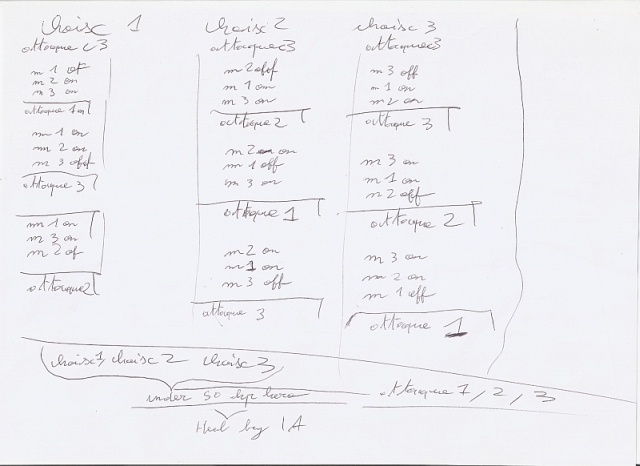 choisc 1
attaque c3
m 1 of
m 2 on
m 3 on
attaque 1
m 1 on
m 2 on
m 3 off
attaque 3
m 1 on
m 3 on
m 2 of
attaque 2
choisc 2
attaque c3
m 2 off
m 1 on
m 3 on
attaque 2
m 2 on
m 1 off
m 3 on
attaque 1
m 2 on
m 1 on
m 3 off
attaque 3
choisc 3
attaque c3
m 3 off
m 1 on
m 2 on
attaque 3
m 3 on
m 1 on
m 2 off
attaque 2
m 3 on
m 2 on
m 1 off
attaque 1
choisc 1, choisc 2 choisc 3
under 50 hp hero attaque 1, 2, 3
Heal by IA